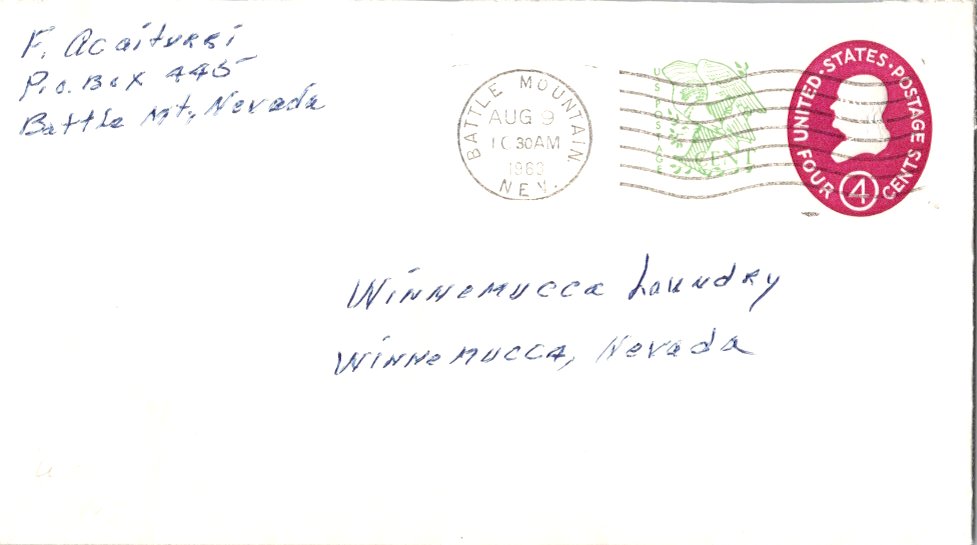 F. Acaiturri
P.o. Box 445
Battle Mt, Nevada
BATTLE MOUNTAIN
AUG 9
10 30AM
1963
NEV.
U.S. POSTAGE
1 CENT
UNITED·STATES·POSTAGE
FOUR 4 CENTS
Winnemucca Laundry
Winnemucca, Nevada